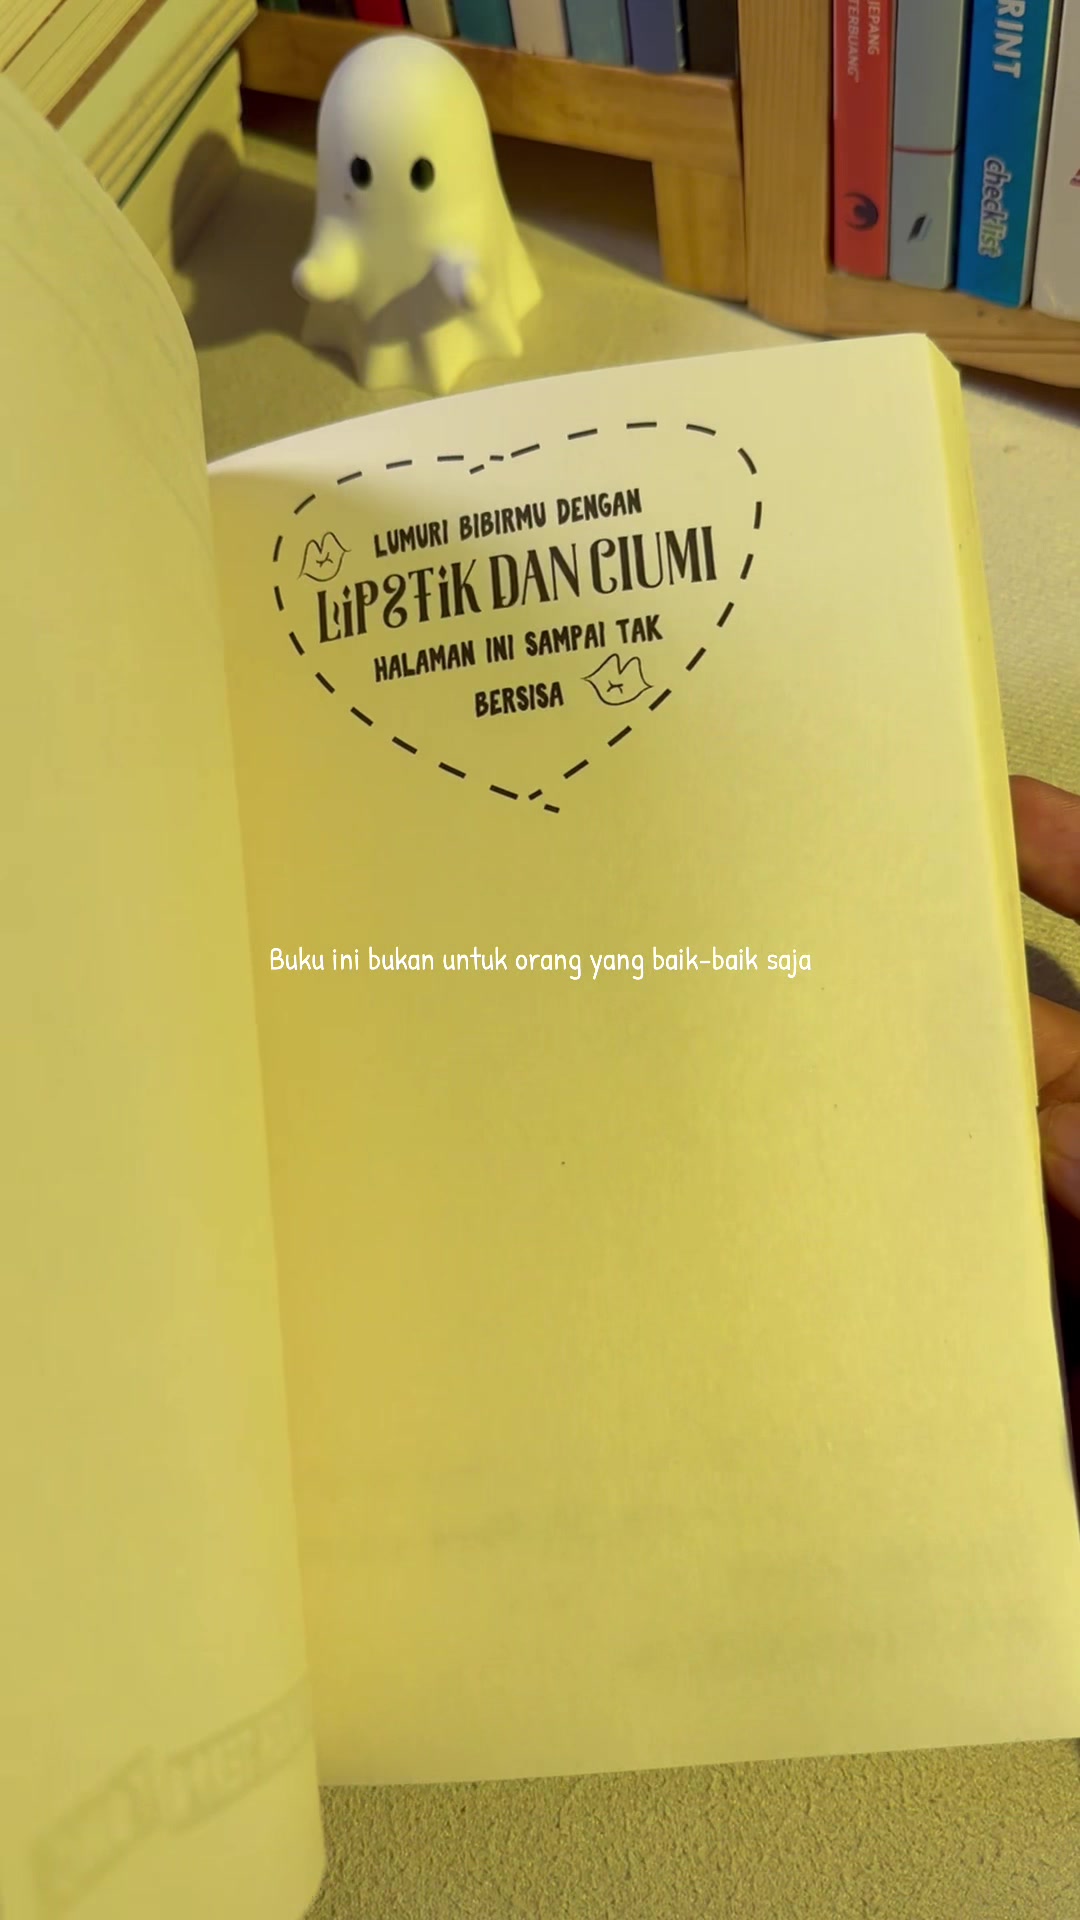 JEPANG
TERBUANG"
RINT
checklist
LUMURI BIBIRMU DENGAN
LiPSTiK DAN CIUMI
HALAMAN INI SAMPAI TAK
BERSISA
Buku ini bukan untuk orang yang baik-baik saja